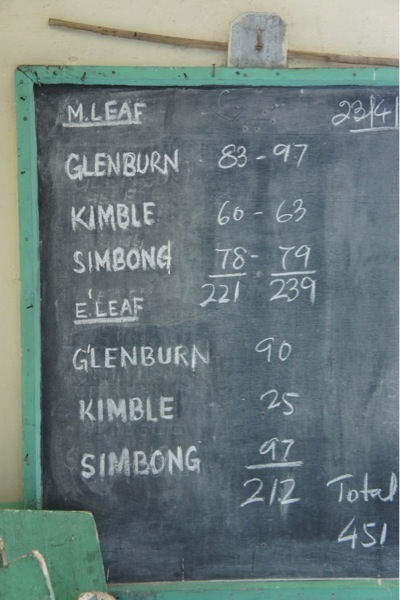 M.LEAF 23/4/
GLENBURN 83 - 97
KIMBLE 60 - 63
SIMBONG 78 - 79
221 239
E'LEAF
G'LENBURN 90
KIMBLE 25
SIMBONG 97
212 Total
451